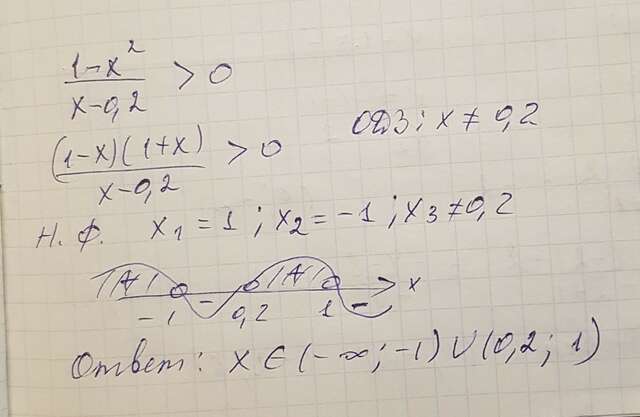 1-x²/x-0,2 > 0
ОДЗ: x ≠ 0,2
(1-x)(1+x)/x-0,2 > 0
Н. Ф. x₁ = 1; x₂ = -1; x₃ ≠ 0,2
+ - + - x
-1 0,2 1
Ответ: x ∈ (-∞; -1) ∪ (0,2; 1)